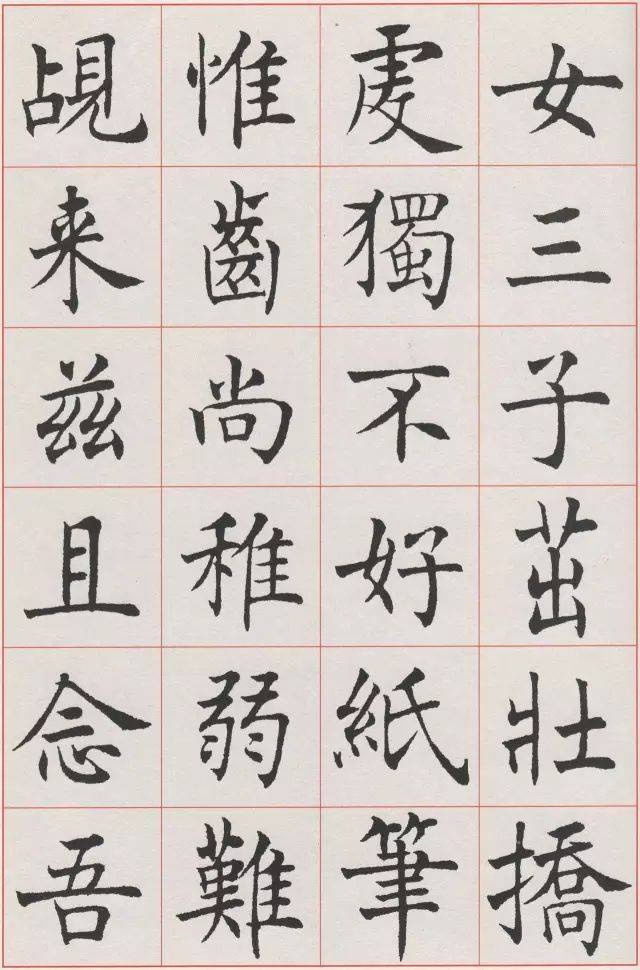 女三子茁壯撟
䖏獨不好紙筆
惟齒尚稚弱難
覘来兹且念吾